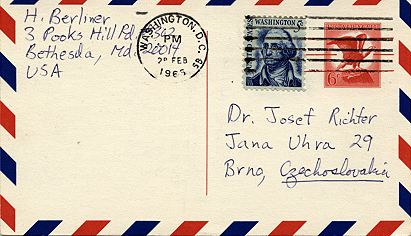 H. Berliner
3 Pooks Hill Rd.
Bethesda, Md. 20014
USA
WASHINGTON, D.C.
PM
FEB
WASHINGTON
5¢
6¢
Dr. Josef Richter
Jana Uhra 29
Brno, Czechoslovakia